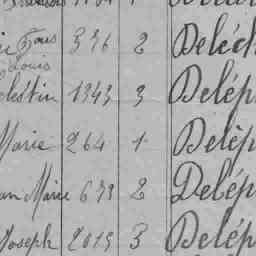 ie Fois 336 2 Deléch
Louis
elestin 1343 3 Delép
Marie 264 1 Delép
an Marie 633 2 Delép
Joseph 2015 3 Delép